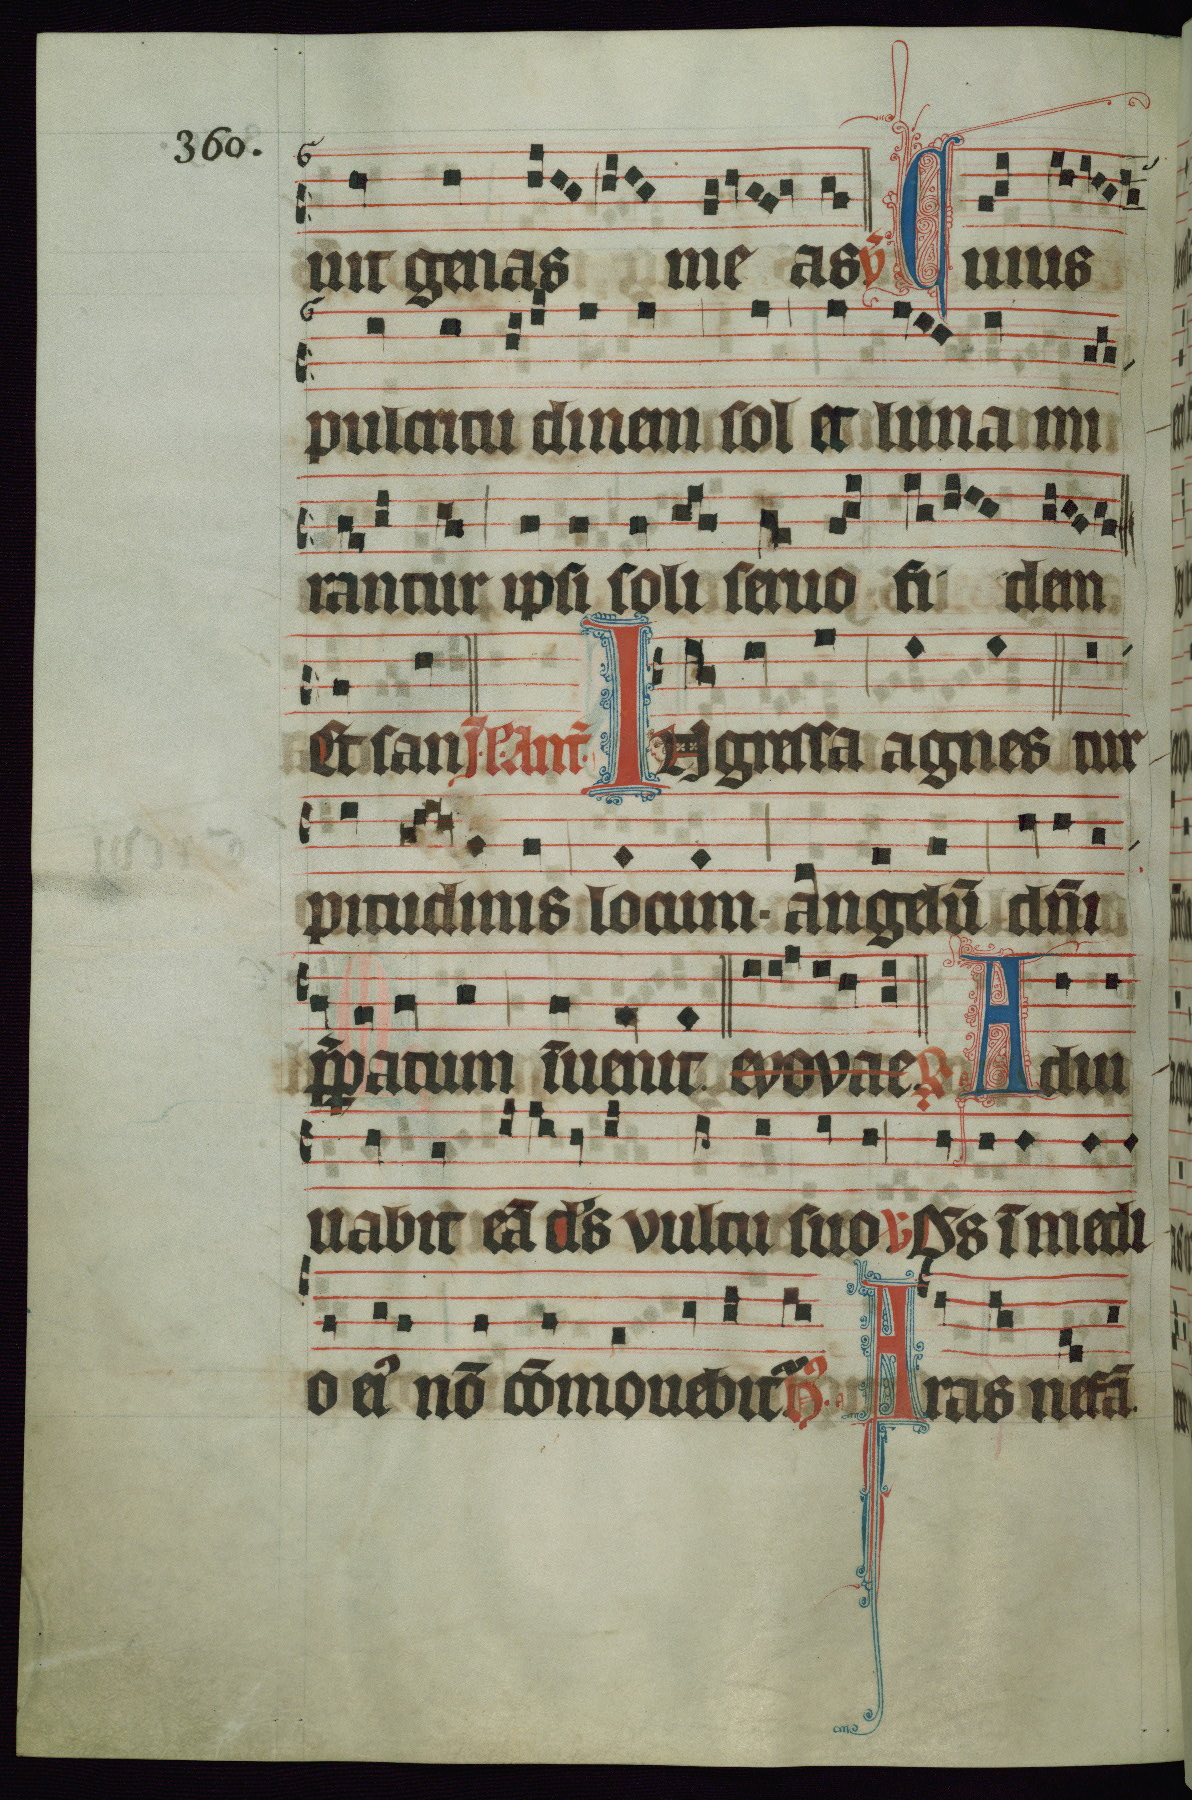 360.
uit genas me as v̄ Quius
pulcritu dinem sol et luna mi
rantur ipsi soli seruo fi dem
Et san Ant̄ INgressa agnes tur
pitudinis locum. angelū dn̄i
p̄paratum īuenit evovae R̄ Adiu
uabit eā ds vultu suo v Ds ī medi
o eiꝰ nō cōmouebit̄ Aras nefā.